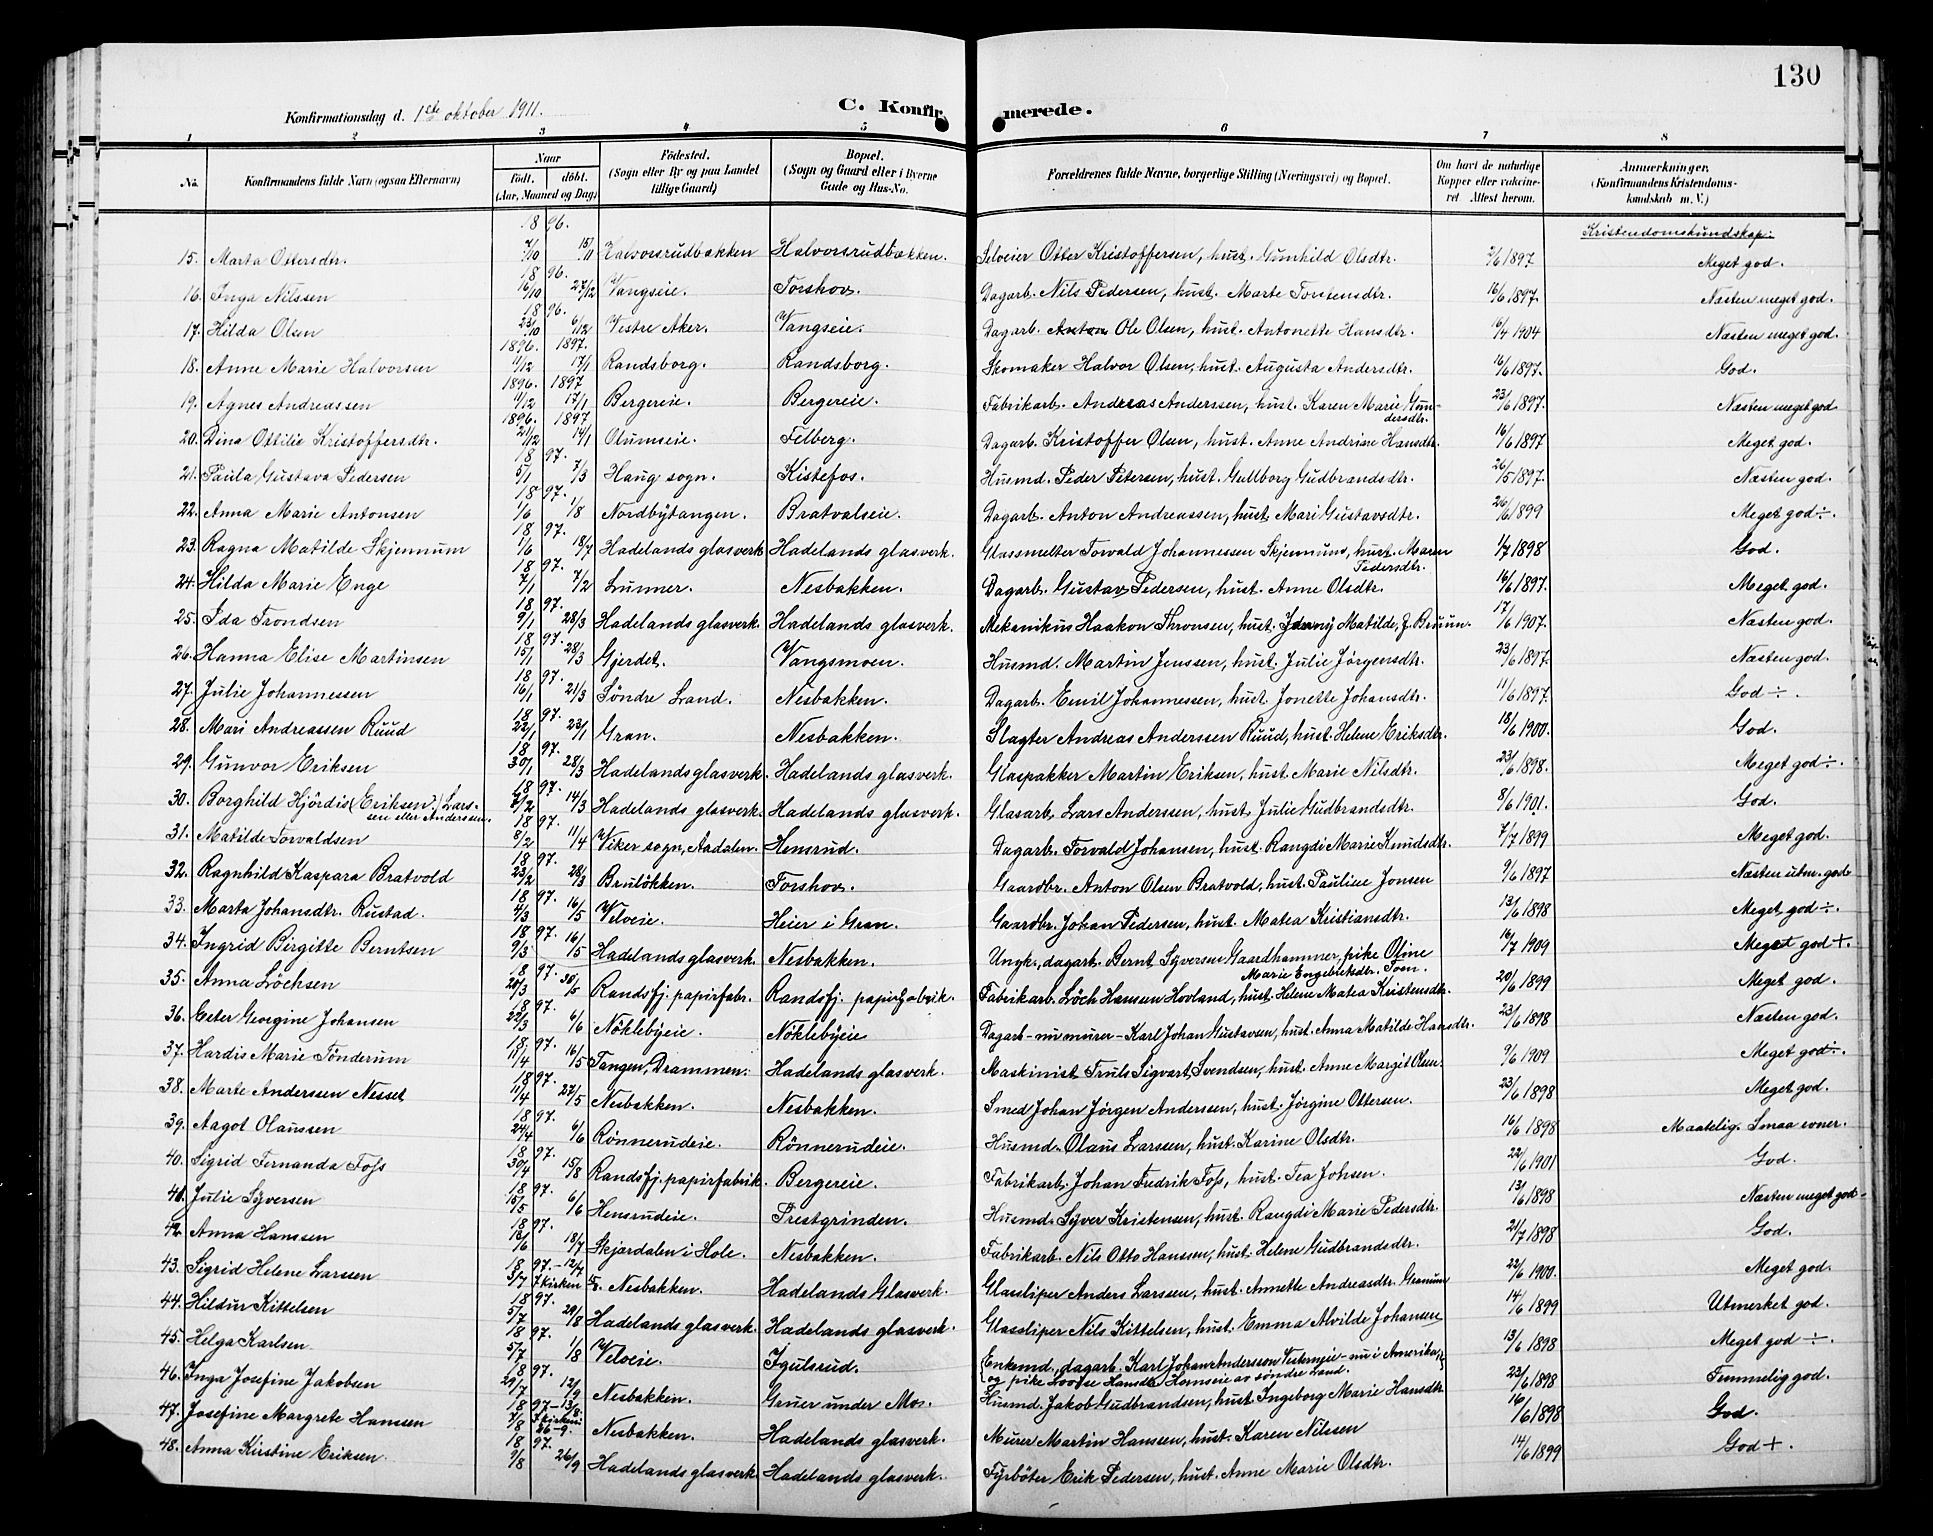 130
Konfirmationsdag d. 1ste oktober 1911.
C. Konfirmerede.
1 2 3 4 5 6 7 8
No. Konfirmandens fulde Navn (ogsaa Efternavn) Naar født. døbt. (Aar, Maaned og Dag) Fødested. (Sogn eller By og paa Landet tillige Gaard) Bopæl. (Sogn og Gaard eller i Byerne Gade og Hus-No. Forældrenes fulde Navne, borgerlige Stilling (Næringsvei) og Bopæl. Om havt de naturlige Kopper eller vaccineret Attest herom. Anmerkninger. (Konfirmandens Kristendomskundskab m. V.)
Kristendomskundskap:
15. Marta Ottersdtr. 1896. 7/10 15/11 Halvorsrudbakken Halvorsrudbakken. Selveier Otter Kristoffersen, hust. Gunhild Olsdtr. 2/6 1897 Meget god.
16. Inga Nilssen 1896. 16/10 27/12 Vangseie. Torshov. Dagarb. Nils Pedersen, hust. Marte Torstensdtr. 16/6 1897. Næsten meget god.
17. Hilda Olsen 1896. 23/10 6/12 Vestre Aker. Vangseie. Dagarb. Ole Olsen, hust. Antonette Hansdtr. 16/4 1904 Næsten meget god.
18. Anne Marie Halvorsen 1896. 11/12 1897. 17/1 Randsborg. Randsborg. Skomaker Halvor Olsen, hust. Augusta Andersdtr. 16/6 1897. God.
19. Agnes Andreassen 1896. 11/12 1897 17/1 Bergereie. Bergereie. Fabrikarb. Andreas Anderssen, hust. Karen Marie Gundersdtr. 23/6 1897. Næsten meget god
20. Dina Ottilie Kristoffersdtr. 1896. 21/12 1897 14/1 Olumseie. Felberg. Dagarb. Kristoffer Olsen, hust. Anne Andrine Hansdtr. 16/6 1897 Meget god.
21. Paula Gustava Pedersen 1897. 5/1 7/3 Haug sogn. Kistefos. Husmd. Peder Petersen, hust. Gullborg Gudbrandsdtr. 26/5 1897. Næsten god.
22. Anna Marie Antonsen 1897. 1/6 1/8 Nordbytangen. Bratvalseie. Dagarb. Anton Andreassen, hust. Mari Gustavsdtr. 26/6 1899 Meget god ÷.
23. Ragna Matilde Skjennum 1897. 1/6 18/7 Hadelands glasverk Hadelands glasverk. Glassmelter Torvald Johannessen Skjennum, hust. Maren Pedersdtr. 1/7 1898 God.
24. Hilda Marie Enge 1897. 7/1 7/2 Lunner. Nesbakken. Dagarb. Gustav Pedersen, hust. Anne Olsdtr. 16/6 1897. Meget god.
25. Ida Trondsen 1897. 9/1 28/3 Hadelands glasverk. Hadelands glasverk. Mekanikus Haakon Thronsen, hust. Jenny Matilde, f. Bruun. 17/6 1907. Næsten god.
26. Hanna Elise Martinsen 1897. 15/1 28/3 Gjerdet. Vangsmoen. Husmd. Martin Jenssen, hust. Julie Jørgensdtr. 23/6 1897. Næsten god.
27. Julie Johannessen 1897. 16/1 21/3 Søndre Land. Nesbakken. Dagarb. Emil Johannessen, hust. Jonette Johansdtr. 11/6 1897. God ÷.
28. Mari Andreassen Ruud 1897. 22/1 23/1 Gran. Nesbakken. Slagter Andreas Anderssen Ruud, hust. Helene Eriksdtr. 18/6 1900. God.
29. Gunvor Eriksen 1897. 30/1 28/3 Hadelands glasverk. Hadelands glasverk. Glaspakker Martin Eriksen, hust. Marie Nilsdtr. 23/6 1898. Meget god ÷.
30. Borghild Hjördis (Eriksen.) Larssen eller Anderssen. 1897. 7/2 14/3 Hadelands glasverk. Hadelands glasverk. Glasarb. Lars Anderssen, hust. Julie Gudbrandsdtr. 8/6 1901. God.
31. Matilde Torvaldsen 1897. 8/2 11/4 Viker sogn, Aadalen. Hensrud. Dagarb. Torvald Johansen, hust. Rangdi Marie Knudsdtr. 7/7 1899 Meget god.
32. Ragnhild Kaspara Bratvold 1897. 23/2 28/3 Bruløkken. Torshov. Gaardbr. Anton Olsen Bratvold, hust. Pauline Jonsen 9/6 1897 Næsten utm. god
33. Marta Johansdtr. Rustad. 1897. 4/3 16/5 Velveie. Heier i Gran. Gaardbr. Johan Pedersen, hust. Matea Kristiansdtr. 13/6 1898 Meget god ÷.
34. Ingrid Birgitte Berntsen 1897. 9/3 16/5 Hadelands glasverk. Nesbakken. Ungk., dagarb. Bernt Syversen Gaardhammer, pike Oline Marie Engebretsdtr. Tom. 16/7 1909 Meget god +.
35. Anna Löchsen 1897. 20/3 30/5 Randsfj. papirfabr. Randsfj. papirfabrik. Fabrikarb. Löch Hansen Hovland, hust. Helene Matea Kristensdtr. 20/6 1899 Meget god.
36. Peter Georgine Johansen 1897. 22/3 6/6 Nöklebyeie. Nöklebyeie Dagarb - nu murer - Karl Johan Gustavsen, hust. Anna Matilde Hansdtr. 23/6 1898 Næsten god.
37. Hardis Marie Tönderum 1897. 11/4 16/5 Tangen, Drammen. Hadelands glasverk. Maskinist Truls Sigvart Svendsen, hust. Anne Margit Olsen. 9/6 1909 Meget god ÷.
38. Marte Anderssen Nesset 1897. 11/4 27/5 Nesbakken. Nesbakken. Smed Johan Jörgen Anderssen, hust. Jörgine Ottersen. 23/6 1898 Meget god.
39. Aagot Olaussen 1897. 24/4 6/6 Rönnerudeie. Rönnerudeie. Husmd. Olaus Larssen, hust. Karine Olsdtr. 16/6 1898 Maatelig. Smaa evner.
40. Sigrid Fernanda Foss 1897. 30/4 15/8 Randsfj. papirfabrik. Bergereie. Fabrikarb. Johan Fredrik Foss, hust. Tea Johsen. 22/6 1901 God.
41. Julie Syversen 1897. 15/5 6/6 Hensrudeie. Prestgrinden. Husmd. Syver Kristensen, hust. Rangdi Marie Pedersdtr. 13/6 1898 Næsten meget god
42. Anna Hanssen 1897. 18/7 Skjærdalen i Hole. Nesbakken. Fabrikarb. Nils Otto Hanssen, hust. Helene Gudbrandsdtr. 21/7 1898 God.
43. Sigrid Helene Larssen 1897. 3/7 - 12/7 I Kirken Nesbakken. Hadelands Glasverk. Glassliper Anders Larssen, hust. Annette Andreasdtr. Granum 22/6 1900. Meget god.
44. Hildur Kittelsen 1897. 5/7 29/8 Hadelands glasverk. Hadelands glasverk. Glassliper Nils Kittelsen, hust. Emma Alvilde Johansen 14/6 1899 Utmerket god.
45. Helga Karlsen 1897. 5/7 1/8 Velveie. Igulsrud. Enkemd. dagarb. Karl Johan Andersson Vesternseie - nu i Amerika, og pike Lovise Hansdtr. Homseie av söndre Land 13/6 1898 Meget god ÷.
46. Inga Josefine Jakobsen 1897. 29/7 12/9 Nesbakken. Gruer under Mo. Husmd. Jakob Gudbrandsen, hust. Ingeborg Marie Hansdtr 23/6 1898 Temmelig god.
47. Josefine Margrete Hansen 1897 - 13/8. 7/8 I kirken 26-9. Nesbakken. Hadelands glasverk. Murer Martin Hanssen, hust. Karen Nilssen 16/6 1898 God.
48. Anna Kirstine Eriksen. 1897. 9/8 26/9 Hadelands glasverk Hadelands glasverk. Fyrböter Erik Pedersen, hust. Anne Marie Olsdtr. 14/6 1899 God +.